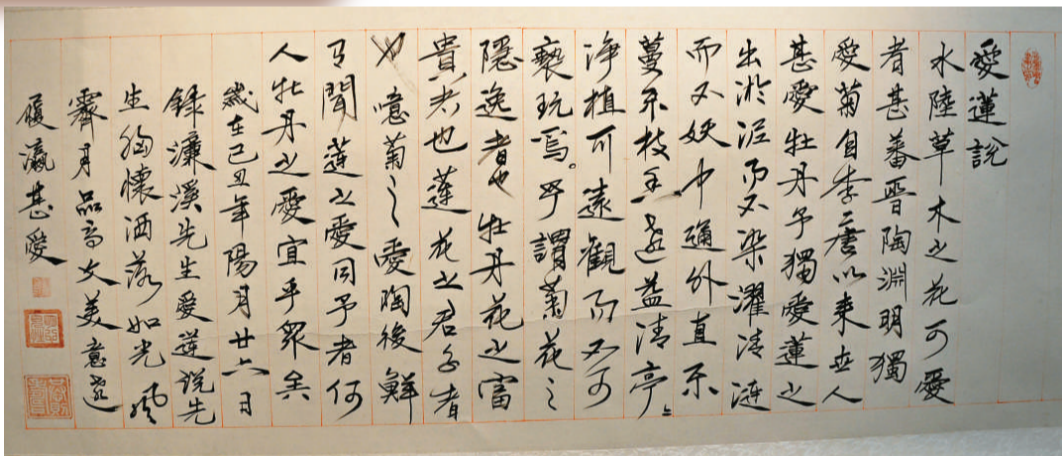 愛蓮說
水陸草木之花可愛
者甚蕃晋陶淵明獨
愛菊自李唐以来世人
甚愛牡丹予獨愛蓮之
出淤泥而不染濯清漣
而不妖中通外直不
蔓不枝香遠益清亭〻
净植可遠觀而不可
褻玩焉。予謂菊花之
隱逸者也牡丹花之富
貴者也蓮花之君子者
也噫菊之愛陶後鮮
有聞蓮之愛同予者何
人牡丹之愛宜乎眾矣
歲在己丑年陽月廿六日
録濂溪先生愛蓮説先
生胸懷洒落如光風
霽月品高文美意遠
履瀛甚愛